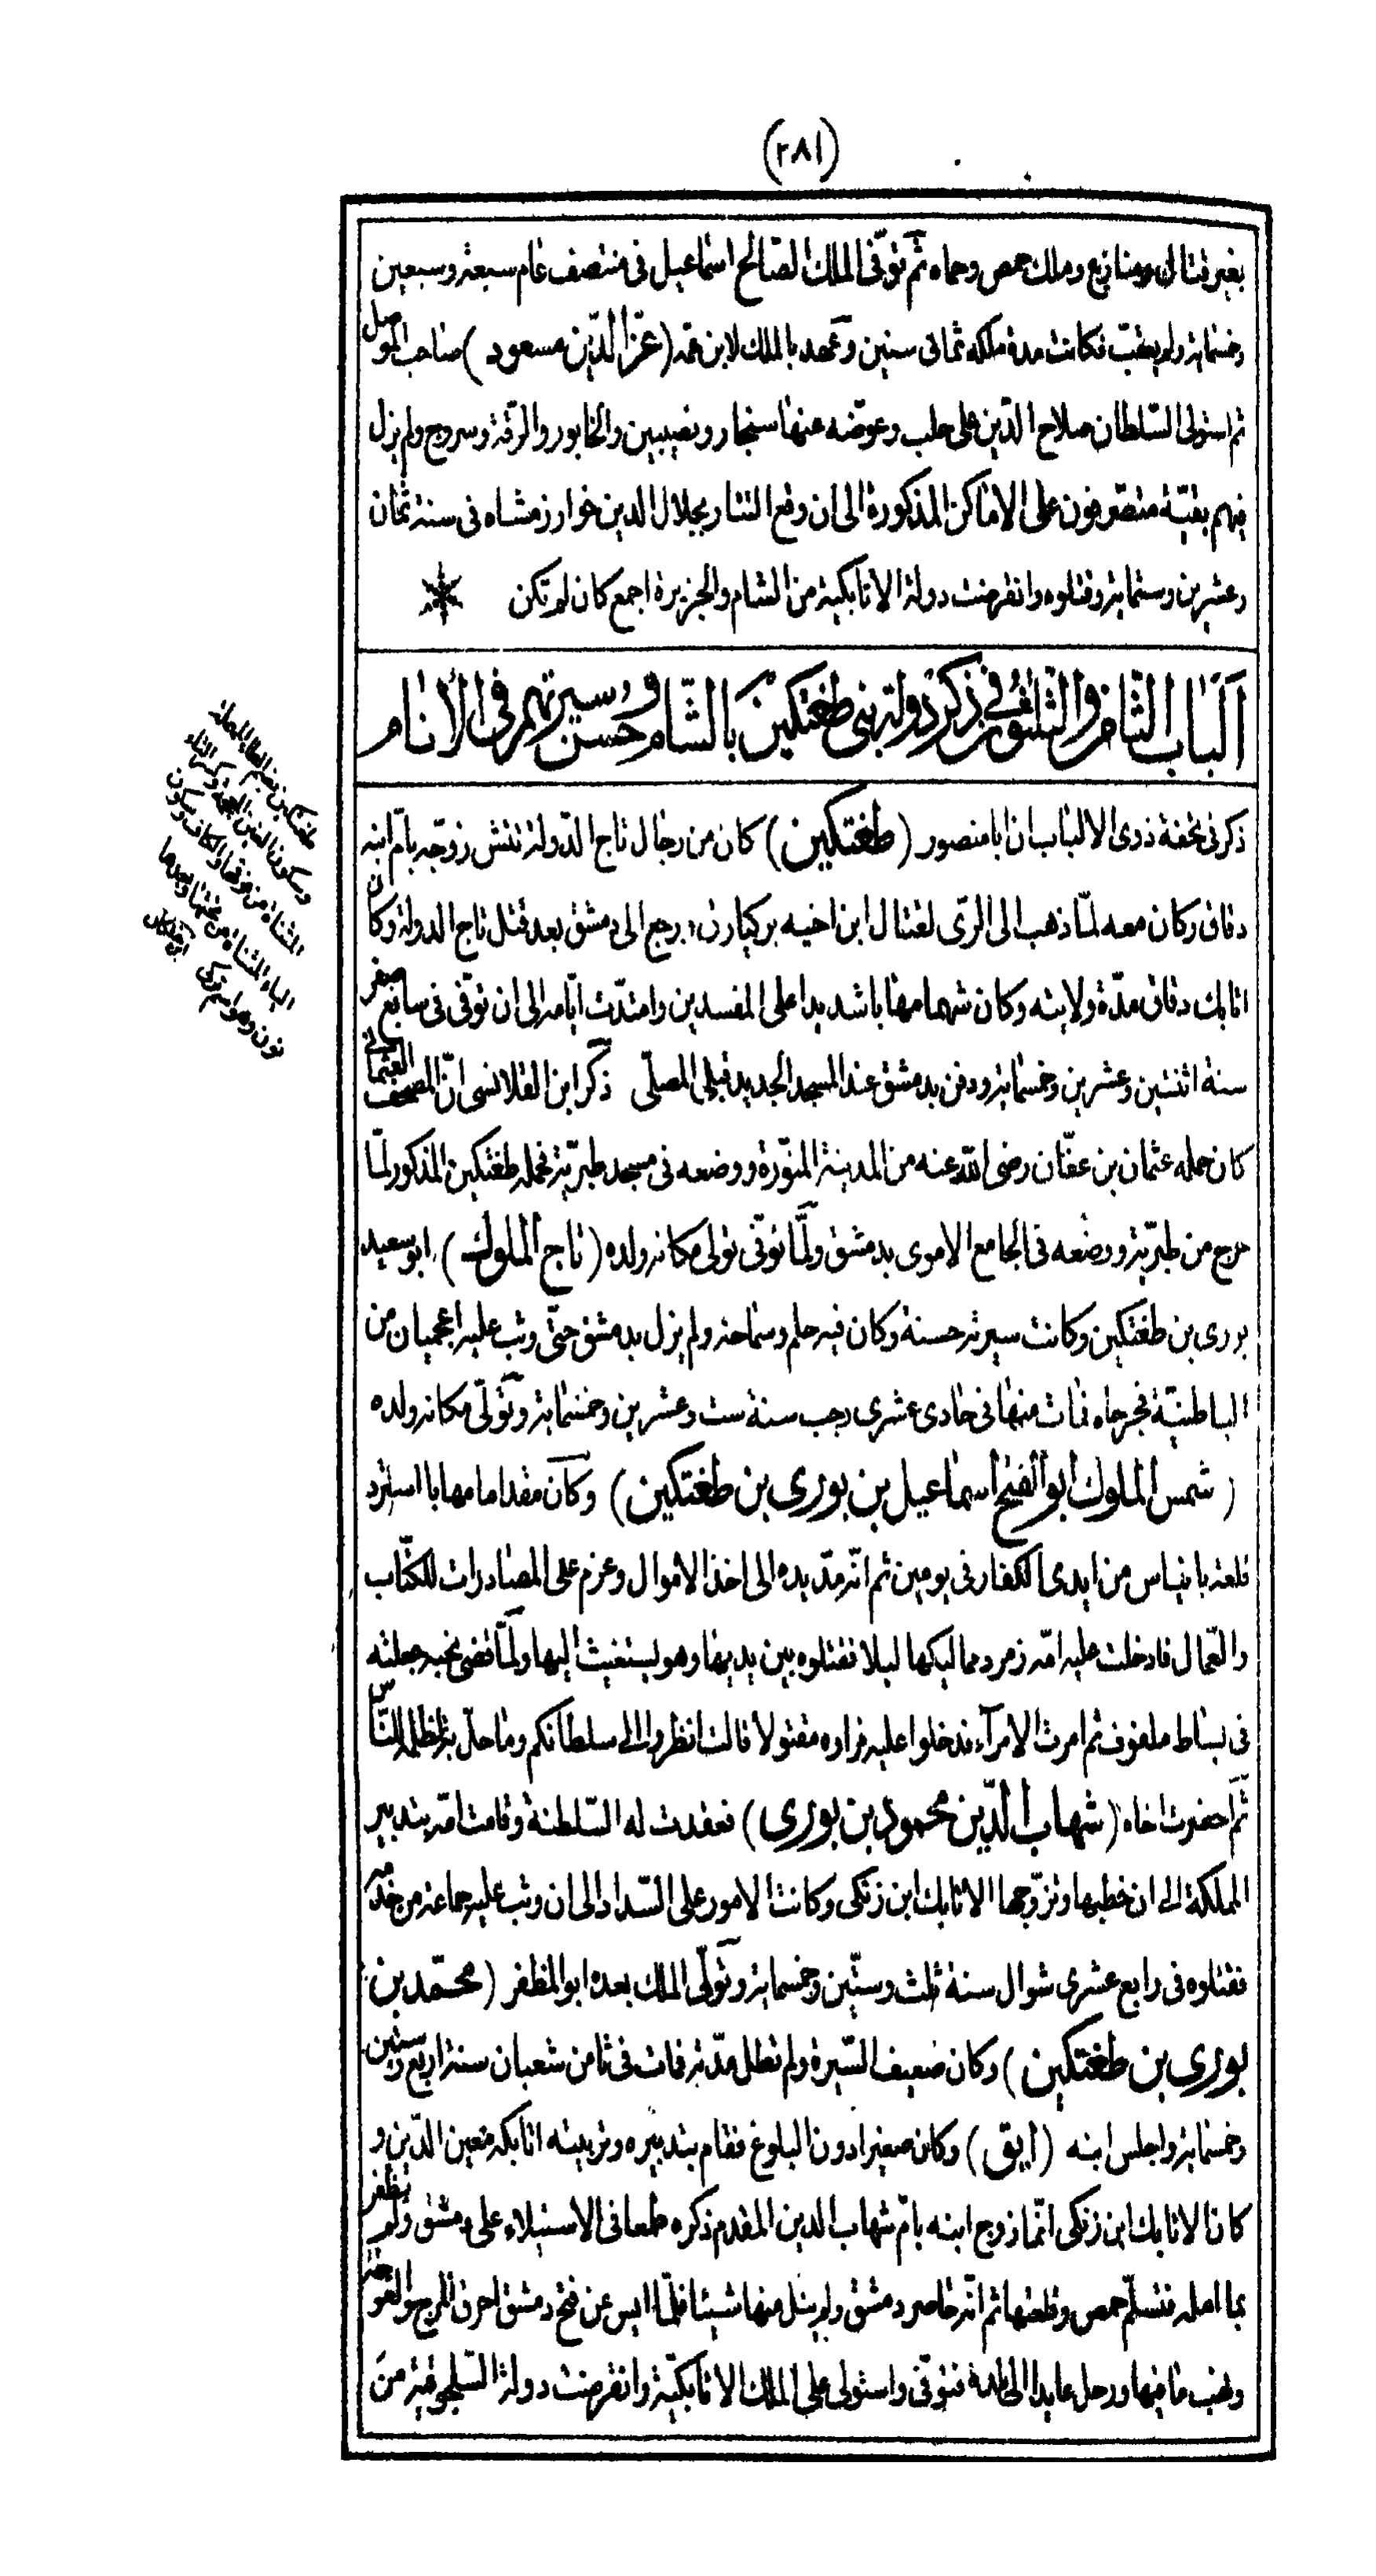 (٢٨١)
بغير قتال ومنازع وملك حمص وحماه ثم توفى الملك الصالح اسماعيل فى منتصف عام سبعة وسبعين
وخمسماية ولم يعقب فكانت مدة ملكه ثمانى سنين وعهد بالملك لابن عمه (عز الدين مسعود) صاحب الموصل
ثم استولى السلطان صلاح الدين على حلب وعوضه عنها سنجار ونصيبين والخابور والرقة وسروج ولم يزل
فيهم بقية متصرفون على الاماكن المذكورة الى ان وقع التتار بجلال الدين خوارزمشاه فى سنة ثمان
وعشرين وستماية وقتلوه وانقرضت دولة الاتابكية من الشام والجزيرة اجمع كان لم تكن
الباب الثامن والثلثون فى ذكر دولة بنى طغتكين بالشام وحسن سيرتهم فى الانام
ذكر فى تحفة ذوى الالباب ان ابا منصور (طغتكين) كان من رجال تاج الدولة تتش زوجه بام ابنه
دقاق وكان معه لما ذهب الى الرى لقتال ابن اخيه بركيارق ورجع الى دمشق بعد قتل تاج الدولة وكان
اتابك دقاق مدة ولايته وكان شهما مهابا شديدا على المفسدين وامتدت ايامه الى ان توفى فى سابع صفر
سنة اثنتين وعشرين وخمسماية ودفن بدمشق عند المسجد الجديد قبلى المصلى ذكر ابن القلانسى ان المصحف العثمانى
كان حمله عثمان بن عفان رضى الله عنه من المدينة المنورة ووضعه فى مسجد طبرية فحمله طغتكين المذكور لما
خرج من طبرية ووضعه فى الجامع الاموى بدمشق ولما توفى تولى مكانه ولده (تاج الملوك) ابو سعيد
بورى بن طغتكين وكانت سيرته حسنة وكان فيه حلم وسماحة ولم يزل بدمشق حتى وثب عليه اعجميان من
الباطنية فجرحاه فمات منها فى حادى عشرى رجب سنة ست وعشرين وخمسماية وتولى مكانه ولده
(شمس الملوك ابو الفتح اسماعيل بن بورى بن طغتكين) وكان مقداما مهابا استرد
قلعة بانياس من ايدى الكفار فى يومين ثم انه مد يده الى اخذ الاموال وعزم على المصادرات للكتاب
والعمال فادخلت عليه امه زمرد مماليكها ليلا فقتلوه بين يديها وهو يستغيث اليها ولما قضى نحبه جعلته
فى بساط ملفوف ثم امرت الامرآء فدخلوا عليه فراوه مقتولا قالت انظروا الى سلطانكم وما حل به لظلمه للناس
ثم احضرت اخاه (شهاب الدين محمود بن بورى) فعقدت له السلطنة وقامت امه بتدبير
المملكة الى ان خطبها وتزوجها الاتابك ابن زنكى وكانت الامور على السداد الى ان وثب عليه جماعة من خدمه
فقتلوه فى رابع عشرى شوال سنة ثلث وستين وخمسماية وتولى الملك بعده ابو المظفر (محمد بن
بورى بن طغتكين) وكان ضعيف السيرة ولم تطل مدته فمات فى ثامن شعبان سنة اربع وستين
وخمسماية واجلس ابنه (ابق) وكان صغيرا دون البلوغ فقام بتدبيره وتربيته اتابكه معين الدين و
كان الاتابك ابن زنكى انما زوج ابنه بام شهاب الدين المقدم ذكره طمعا فى الاستيلاء على دمشق ولم يظفر
بما امله فتسلم حمص وقلعتها ثم انه حاصر دمشق ولم ينل منها شيئا فلما ايس عن فتح دمشق احرق المرج والغوطة
ونهب ما فيها ورحل عايدا الى بلده فتوفى واستولى على الملك الاتابكية وانقرضت دولة السلجوقية من
طغتكين بضم الطاء المهملة
وسكون الغين المعجمة وكسر التاء
المثناة من فوقها والكاف وسكون
الياء المثناة من تحتها وبعدها
نون وهو اسم تركى ابن خلكان